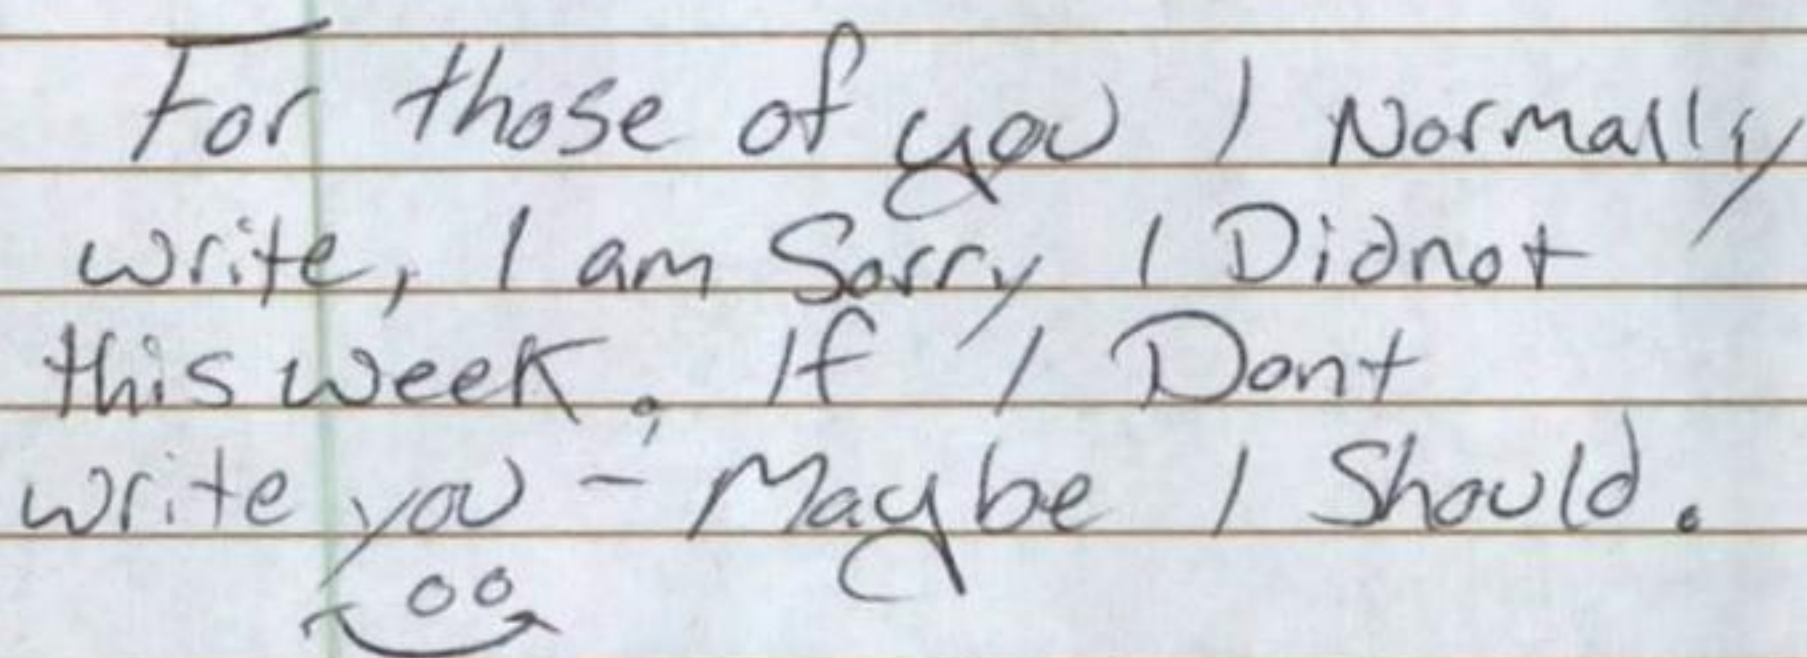 For those of you I Normally
write, I am Sorry I Didnot
this week. If I Dont
write you - Maybe I Should.